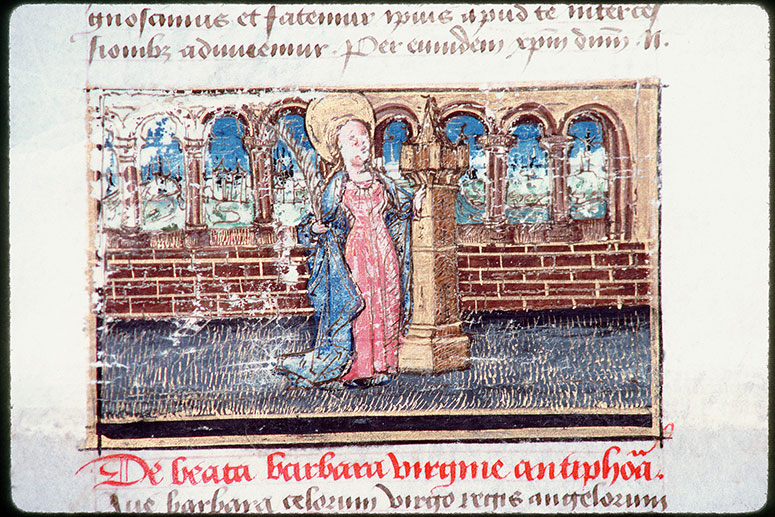 gnoscimus et fatemur ipsius apud te interces
sionibz adiuvemur. Per eundem xpm dnm N.
De beata barbara virgine antiphoā.
Ave barbara celorum virgo regis angelorum